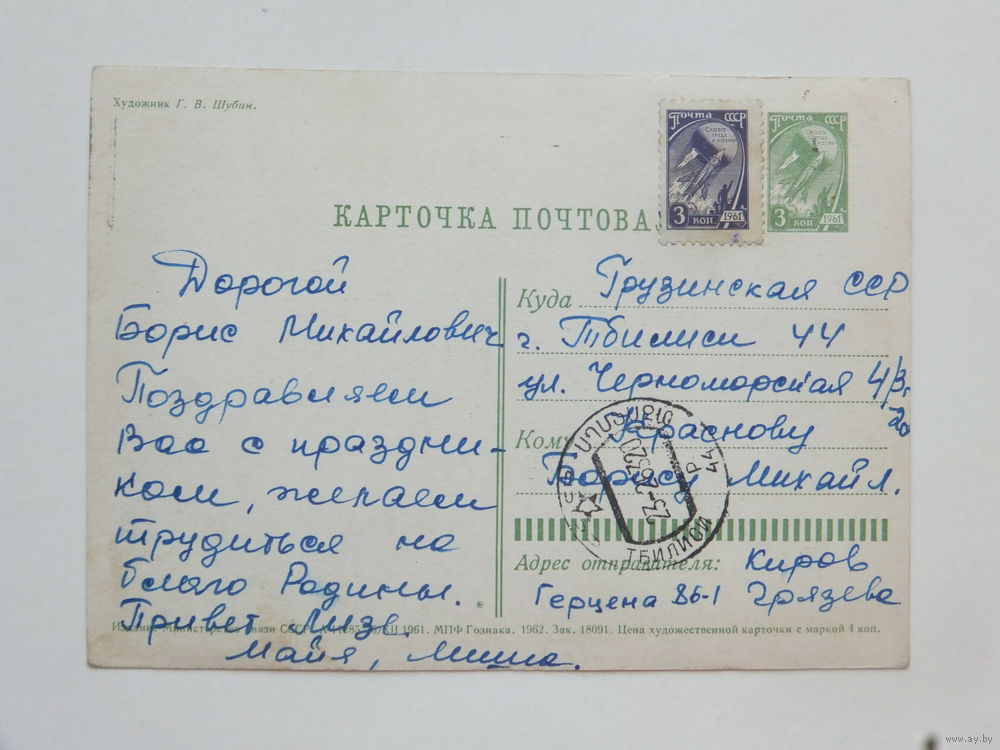 Художник Г. В. Шубин.
Почта СССР
Слава труду и науке
3 коп. 1961
Почта СССР
3 коп. 1961
КАРТОЧКА ПОЧТОВА
Дорогой
Борис Михайлович
Поздравляем
Вас с праздни-
ком, желаем
трудиться на
благо Родины.
Привет Лизе
Майя, Миша.
Куда Грузинская ССР
г. Тбилиси 44
ул. Черноморская 4/3
Кому Краснову
Борису Михайл.
ТБИЛИСИ
44
Адрес отправителя: Киров
Герцена 86-1 Грязева
*
Издание Министерства связи СССР. XII 1961. МПФ Гознака. 1962. Зак. 18091. Цена художественной карточки с маркой 4 коп.
www.ay.by